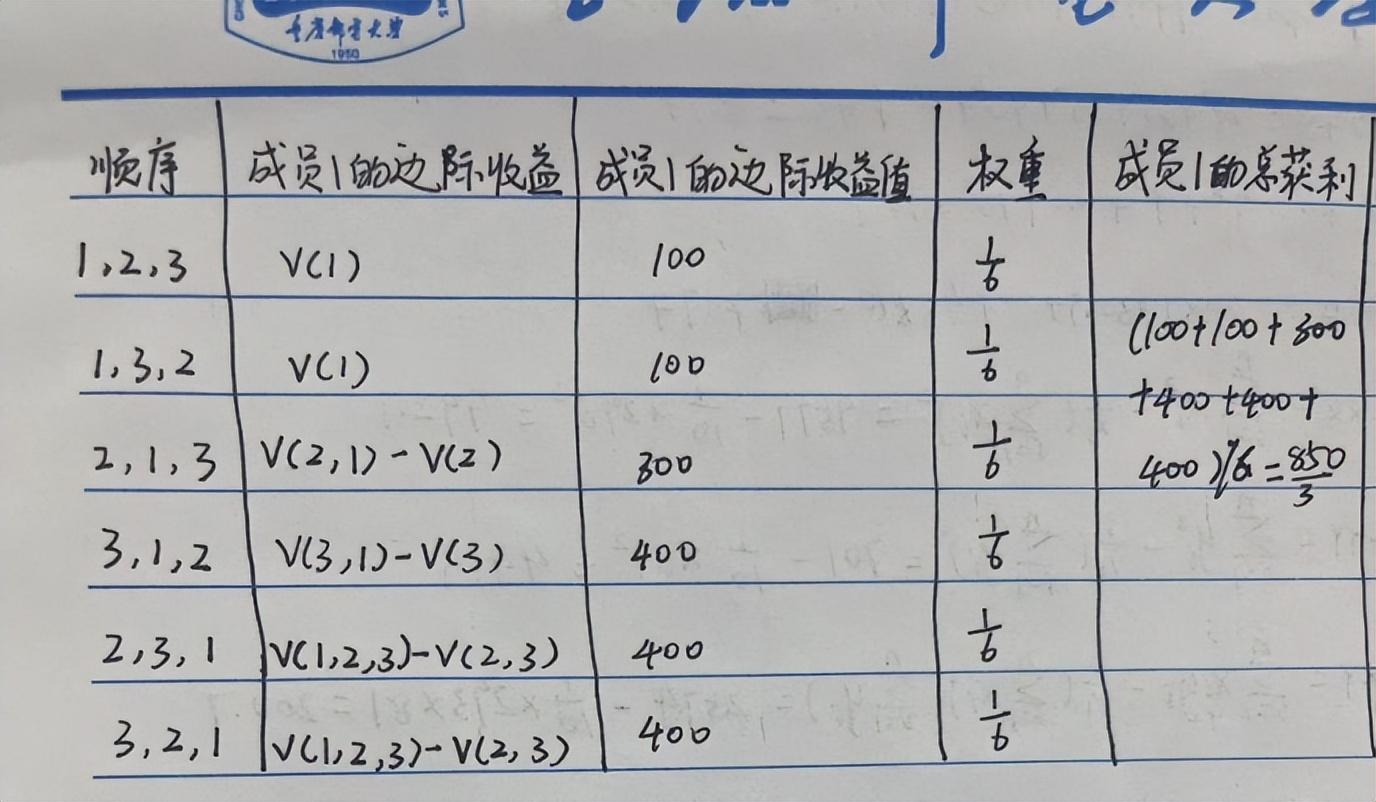 重庆邮电大学
1950
顺序 成员1的边际收益 成员1的边际收益值 权重 成员1的总获利
1,2,3 V(1) 100 1/6
1,3,2 V(1) 100 1/6 (100+100+300
+400+400+
2,1,3 V(2,1)-V(2) 300 1/6 400)/6=850/3
3,1,2 V(3,1)-V(3) 400 1/6
2,3,1 V(1,2,3)-V(2,3) 400 1/6
3,2,1 V(1,2,3)-V(2,3) 400 1/6